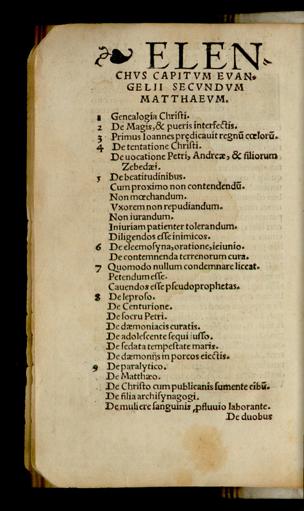 ELEN-
CHVS CAPITVM EVAN-
GELII SECVNDVM
MATTHAEVM.
1 Genealogia Christi.
2 De Magis, & pueris interfectis.
3 Primus Ioannes predicauit regnũ cœlorũ.
4 De tentatione Christi.
De uocatione Petri, Andreæ, & filiorum
Zebedæi.
5 De beatitudinibus.
Cum proximo non contendendũ.
Non mœchandum.
Vxorem non repudiandum.
Non iurandum.
Iniuriam patienter tolerandum.
Diligendos esse inimicos.
6 De eleemosyna, oratione, ieiunio.
De contemnenda terrenorum cura.
7 Quomodo nullum condemnare liceat.
Petendum esse.
Cauendos esse pseudoprophetas.
8 De leproso.
De Centurione.
De socru Petri.
De dæmoniacis curatis.
De adolescente sequi iusso.
De sedata tempestate maris.
De dæmonijs in porcos eiectis.
9 De paralytico.
De Matthæo.
De Christo cum publicanis sumente cibũ.
De filia archisynagogi.
De muliere sanguinis ꝓfluuio laborante.
De duobus